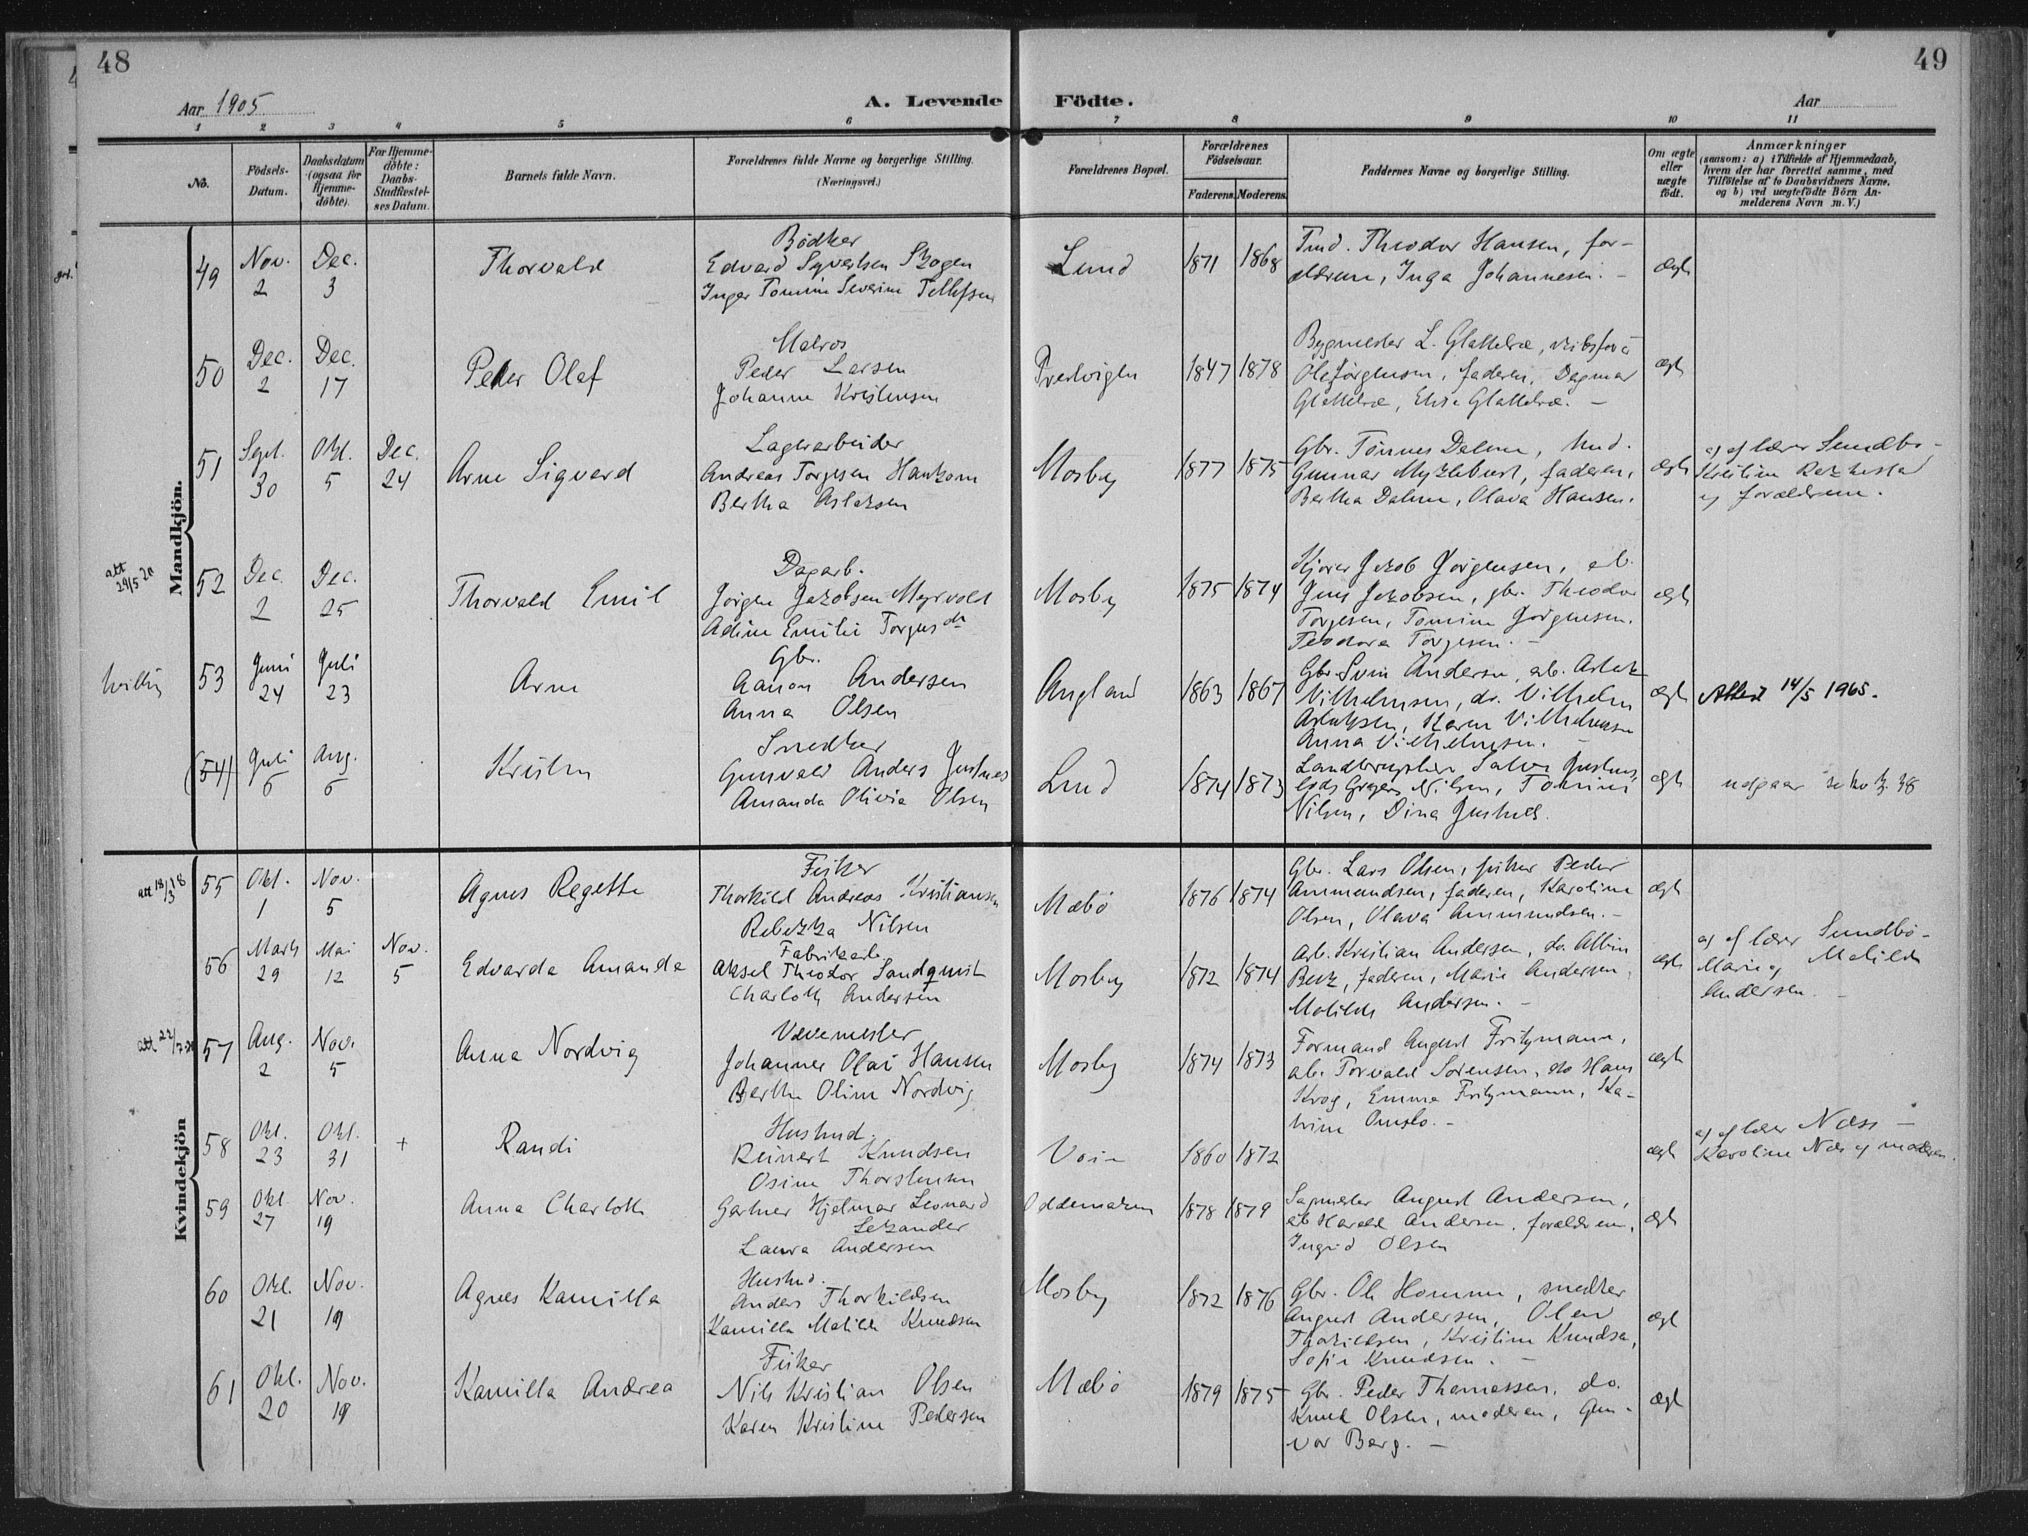 48
49
Aar 1905
A. Levende Födte.
Aar
1 2 3 4 5 6 7 8 9 10 11
No.
Födsels-Datum.
Daabsdatum (ogsaa for Hjemme-döbte).
For Hjemme-döbte: Daabs-Stadfæstel-ses Datum.
Barnets fulde Navn.
Forældrenes fulde Navne og borgerlige Stilling. (Næringsvei.)
Forældrenes Bopæl.
Forældrenes Födselsaar.
Faderens. Moderens.
Faddernes Navne og borgerlige Stilling.
Om ægte eller uægte födt.
Anmærkninger
(saasom: a) i Tilfælde af Hjemmedaab, hvem der har forrettet samme, med Tilföielse af to Daabsvidners Navne, og b) ved uægtefödte Börn An-melderens Navn m. V.)
Mandkjön.
49 Nov. 2 Dec. 3 Thorvald
Bødker
Edvard Syvertsen Skogen
Inger Tomine Severine Tellefsen
Lund 1871 1868
Theodor Hansen, for-
ældrene, Inga Johannesen. –
ægte
50 Dec. 2 Dec. 17 Peder Olaf
Matros
Peder Larsen
Johanne Kristensen
1847 1878
Bygmester L. Glattetre,
Ole Jørgensen, faderen, Dagmar
Glattetre, Elise Glattetre. –
ægte
51 Sept. 30 Okt. 5 Dec. 24 Arne Sigvard
Lagerarbeider
Andreas Torgesen
Bertha Aslaksen
Mosby 1877 1875
Gbr. Tønnes Dalene,
Gunnar Myklebust, faderen,
Bertha Dalene, Olava Hansen.
ægte
af lærer Sundbø –
Kristine
og forældrene.
att 29/5 20
52 Dec. 2 Dec. 25 Thorvald Emil
Dagarb.
Jørgen Jakobsen Myrvold
Adine Emilie Torgusdr
Mosby 1875 1874
Jakob Jørgensen, arb.
Jens Jakobsen, gbr. Theodor
Torgesen, Tomine Jørgensen.
Teodora Torgesen. –
ægte
53 Juni 24 Juli 23 Arne
Gbr.
Aanon Andersen
Anna Olsen
Augland 1863 1867
Gbr. Sven Andersen, arb. Aslak
Vilhelmsen, do. Vilhelm
Aslaksen, Karen Vilhelmsen
Anna Vilhelmsen. –
ægte
Attest 14/5 1965.
(54) Juli 6 Aug. 6 Kristen
Snedker
Gunvald Anders Justnes
Amanda Olivia Olsen
Lund 1874 1873
Justnes,
Nilsen, Tomine
Nilsen, Dina Justnes.
ægte
udgaar se No. 38
Kvindekjön
att 18/3 18
55 Okt. 1 Nov. 5 Agnes Regette
Fisker
Thorkild Andreas Kristiansen
Rebekka Nilsen
Mæbø 1876 1874
Gbr. Lars Olsen, fisker Peder
Ammundsen, faderen, Karoline
Olsen, Olava Ammundsen. –
ægte
56 Marts 29 Mai 12 Nov. 5 Edvarda Amanda
Fabrikarb
Aksel Theodor Sandquist
Charlotte Andersen
Mosby 1872 1874
Arb. Kristian Andersen, do. Albin
Berk, faderen, Marie Andersen,
Matilde Andersen. –
ægte
af lærer Sundbø –
Marie og Matilde
Andersen. –
att 22/7
57 Aug. 2 Nov. 5 Anna Nordvig
Vævemester
Johannes Olai Hansen
Berthe Oline Nordvig
Mosby 1874 1873
Formand August Fritzmann,
arb. Torvald Sørensen, do Hans
Krog, Emma Fritzmann, Ka-
trine Omslo. –
ægte
58 Okt. 23 Okt. 31 + Randi
Husmd.
Reinert Knudsen
Osine Thorstensen
Voie 1860 1872
ægte
af lærer Næss –
Karoline Næs og moderen.
59 Okt. 27 Nov. 19 Anna Charlotte
Gartner Hjelmar Leonard
Lekander
Laura Andersen
Oddernæs 1878 1879
Sagmester August Andersen,
arb Harald Andersen, forældrene,
Ingrid Olsen
ægte
60 Okt. 21 Nov. 19 Agnes Kamilla
Husmd.
Anders Thorkildsen
Kamilla Matilde Knudsen
Mosby 1872 1876
Gbr. Ole Homme, snedker
August Andersen, Olav
Thorkildsen, Kristine Knudsen,
Sofie Knudsen. –
ægte
61 Okt. 20 Nov. 19 Kamilla Andrea
Fisker
Nils Kristian Olsen
Karen Kristine Pedersen
Mæbø 1879 1875
Gbr. Peder Thomassen, do.
Knud Olsen, moderen, Gun-
vor Berg. –
ægte